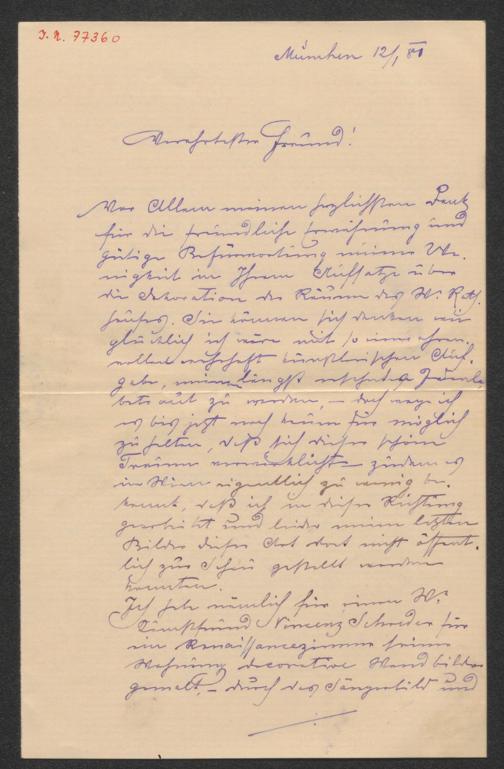 J. N. 77360
München 12/I 81
Verehrtester Freund!
Vor Allem meinen herzlichsten Dank
für die freundliche Erwähnung und
gütige Befürwortung meiner We-
nigkeit in Ihrem Aufsatze über
die Dekoration der Räume des Wr. Rath-
hauses. Sie können sich denken wie
glücklich ich wäre mit so einer ehren-
vollen wahrhaft künstlerischen Auf-
gabe, meine längst
betraut zu werden, – doch wage ich
es bis jetzt noch kaum für möglich
zu halten, daß sich dieser schöne
Traum verwirklicht zudem es
in Wien eigentlich zu wenig be-
kannt, daß ich in dieser Richtung
gearbeitet und leider meine letzten
Bilder dieser Art dort nicht öffent-
lich zur Schau gestellt werden
konnten.
Ich habe nämlich für einen Wr.
Kunstfreund Vincenz für
ein Renaissancezimmer seiner
Wohnung decorative Wandbilder
gemalt, – durch das Sängerbild und